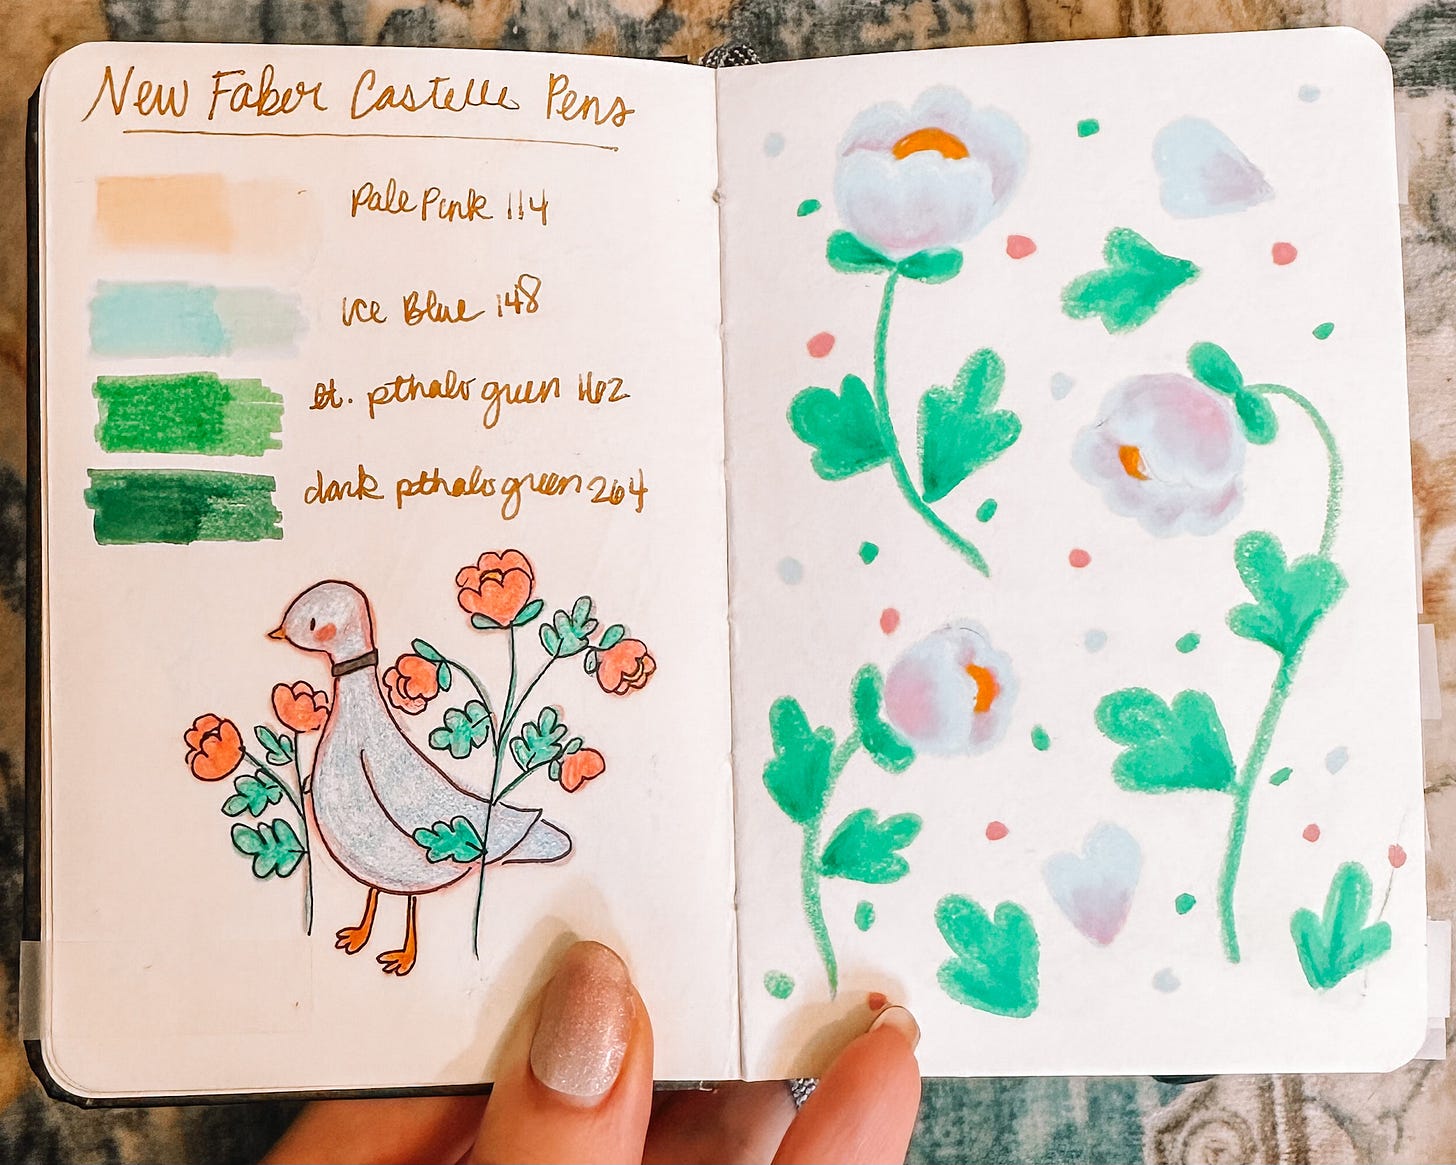 New Faber Castelle Pens
Pale Pink 114
Ice Blue 148
lt. pthalo green 162
dark pthalo green 264